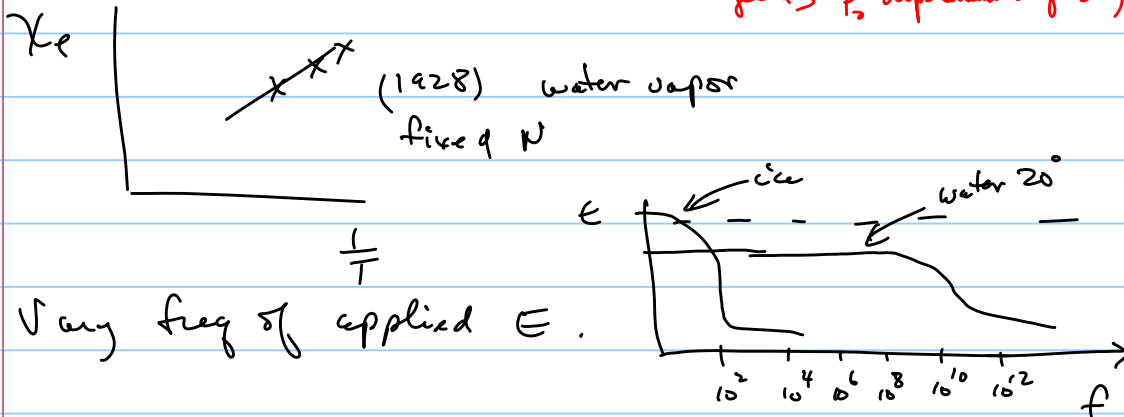 χe
(1928) water vapor
fixed N
1/T
ϵ
ice
water 20°
Vary freq of applied E.
10² 10⁴ 10⁶ 10⁸ 10¹⁰ 10¹²
f